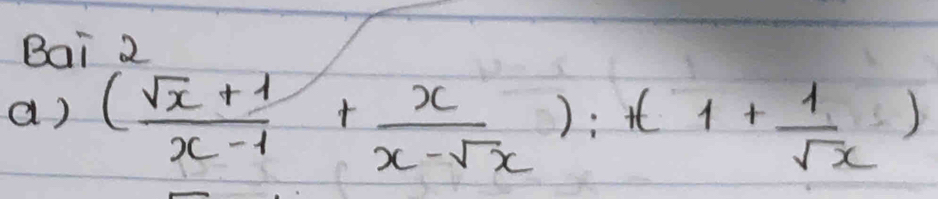 Bai 2
a) (\frac{\sqrt{x} + 1}{x - 1} + \frac{x}{x - \sqrt{x}}) : (1 + \frac{1}{\sqrt{x}})